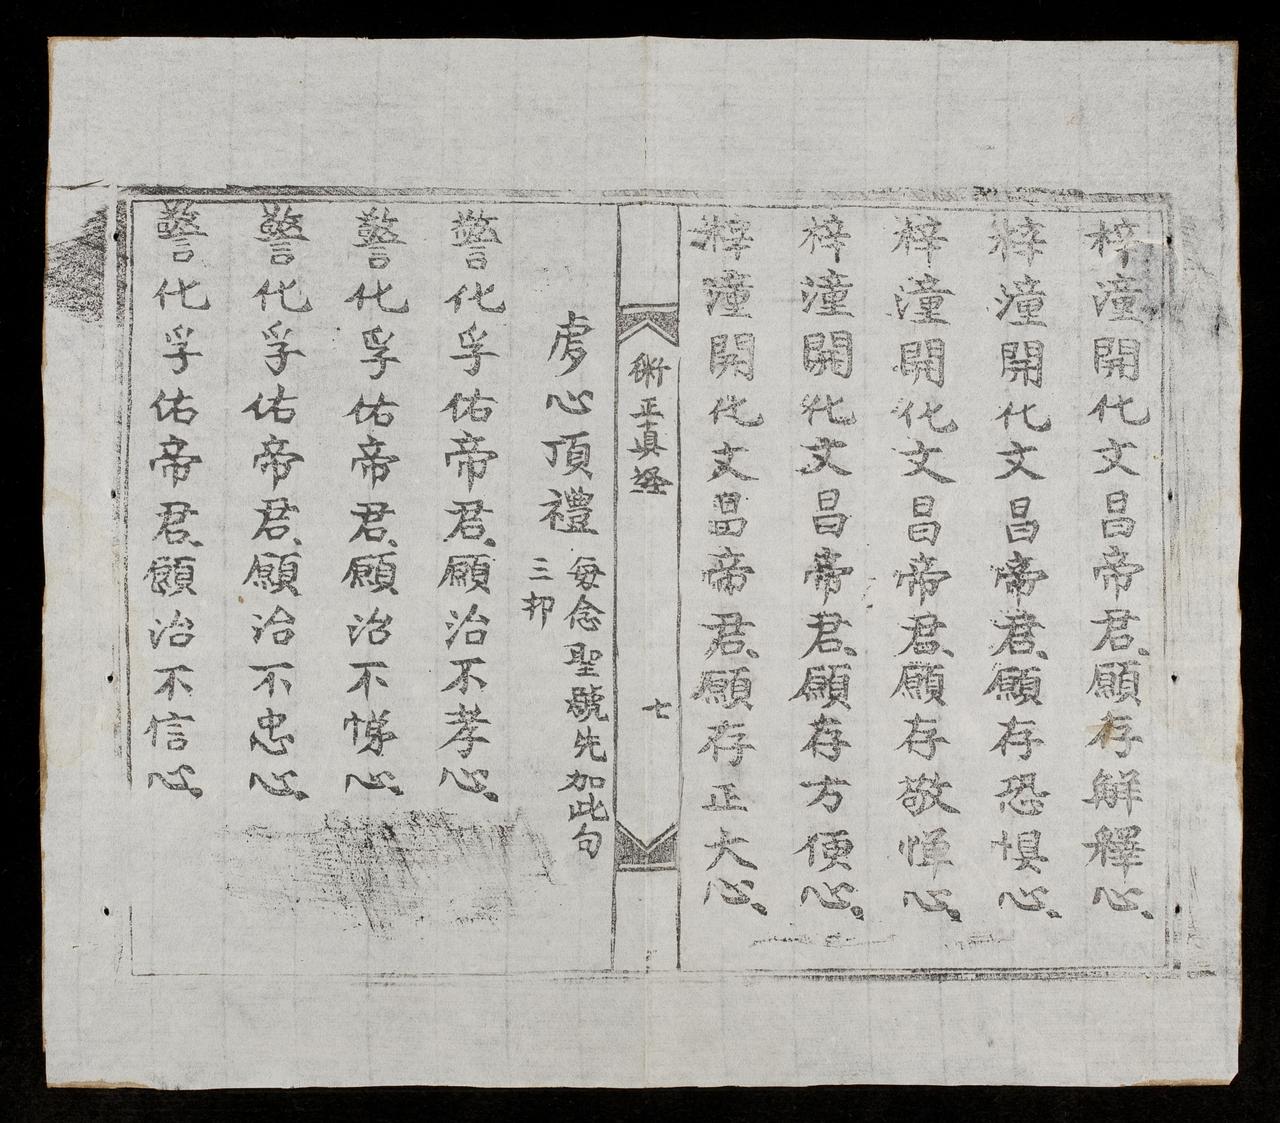 梓潼開化文昌帝君、願存解釋心、
梓潼開化文昌帝君、願存恐惧心、
梓潼開化文昌帝君、願存敬惮心、
梓潼開化文昌帝君、願存方便心、
梓潼開化文昌帝君、願存正大心、
術正真經
七
虔心頂禮
每念聖號先加此句
三卯
警化孚佑帝君、願治不孝心、
警化孚佑帝君、願治不悌心、
警化孚佑帝君、願治不忠心、
警化孚佑帝君、願治不信心、